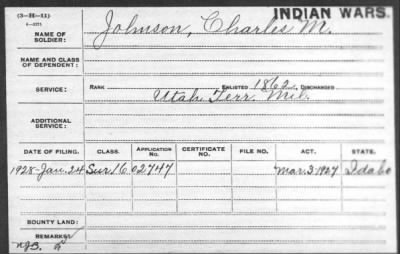 (3-H-11)
INDIAN WARS.
NAME OF SOLDIER: Johnson, Charles M.
NAME AND CLASS OF DEPENDENT:
SERVICE: RANK ENLISTED 1862, DISCHARGED
Utah Terr. Mil.
ADDITIONAL SERVICE:
DATE OF FILING. CLASS. APPLICATION No. CERTIFICATE NO. FILE NO. ACT. STATE.
1928-Jan. 24 Sur. 16 02747 Mar. 3. 1927 Idaho
BOUNTY LAND:
REMARKS: